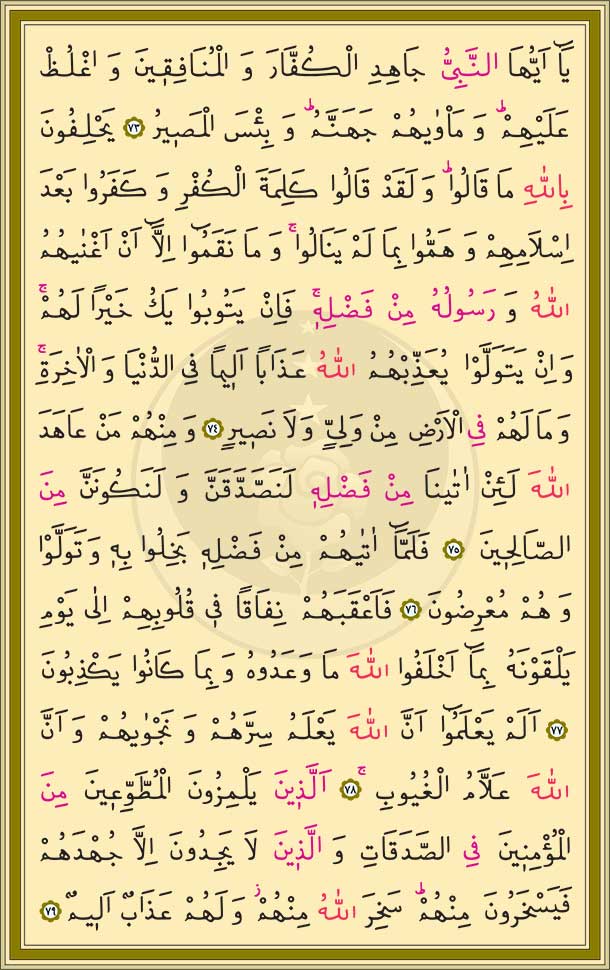 يَٓا اَيُّهَا النَّبِيُّ جَاهِدِ الْكُفَّارَ وَ الْمُنَافِقٖينَ وَ اغْلُظْ
عَلَيْهِمْؕ وَ مَاْوٰيهُمْ جَهَنَّمُؕ وَ بِئْسَ الْمَصٖيرُ ﴿٧٣﴾ يَحْلِفُونَ
بِاللّٰهِ مَا قَالُواؕ وَ لَقَدْ قَالُوا كَلِمَةَ الْكُفْرِ وَ كَفَرُوا بَعْدَ
اِسْلَامِهِمْ وَ هَمُّوا بِمَا لَمْ يَنَالُواۚ وَ مَا نَقَمُٓوا اِلَّٓا اَنْ اَغْنٰيهُمُ
اللّٰهُ وَ رَسُولُهُ مِنْ فَضْلِهٖۚ فَاِنْ يَتُوبُوا يَكُ خَيْرًا لَهُمْۚ
وَ اِنْ يَتَوَلَّوْا يُعَذِّبْهُمُ اللّٰهُ عَذَابًا اَلٖيمًا فِي الدُّنْيَا وَ الْاٰخِرَةِۚ
وَ مَا لَهُمْ فِي الْاَرْضِ مِنْ وَلِيٍّ وَ لَا نَصٖيرٍ ﴿٧٤﴾ وَ مِنْهُمْ مَنْ عَاهَدَ
اللّٰهَ لَئِنْ اٰتٰينَا مِنْ فَضْلِهٖ لَنَصَّدَّقَنَّ وَ لَنَكُونَنَّ مِنَ
الصَّالِحٖينَ ﴿٧٥﴾ فَلَمَّٓا اٰتٰيهُمْ مِنْ فَضْلِهٖ بَخِلُوا بِهٖ وَ تَوَلَّوْا
وَ هُمْ مُعْرِضُونَ ﴿٧٦﴾ فَاَعْقَبَهُمْ نِفَاقًا فٖي قُلُوبِهِمْ اِلٰى يَوْمِ
يَلْقَوْنَهُ بِمَٓا اَخْلَفُوا اللّٰهَ مَا وَعَدُوهُ وَ بِمَا كَانُوا يَكْذِبُونَ
﴿٧٧﴾ اَلَمْ يَعْلَمُٓوا اَنَّ اللّٰهَ يَعْلَمُ سِرَّهُمْ وَ نَجْوٰيهُمْ وَ اَنَّ
اللّٰهَ عَلَّامُ الْغُيُوبِۚ ﴿٧٨﴾ اَلَّذٖينَ يَلْمِزُونَ الْمُطَّوِّعٖينَ مِنَ
الْمُؤْمِنٖينَ فِي الصَّدَقَاتِ وَ الَّذٖينَ لَا يَجِدُونَ اِلَّا جُهْدَهُمْ
فَيَسْخَرُونَ مِنْهُمْؕ سَخِرَ اللّٰهُ مِنْهُمْؗ وَ لَهُمْ عَذَابٌ اَلٖيمٌ ﴿٧٩﴾